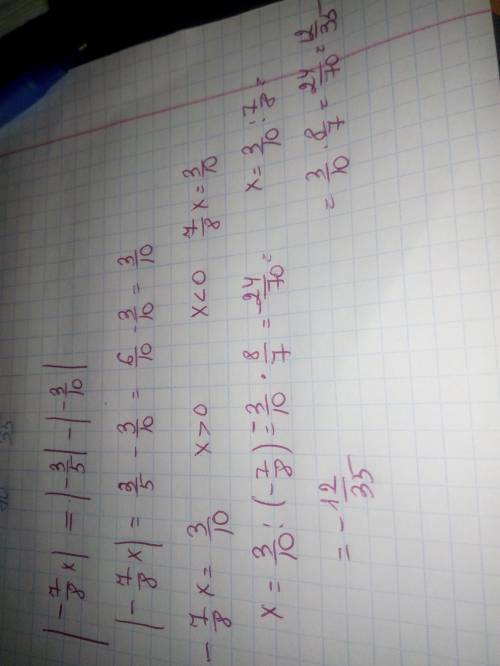 |-7/8 x| = |-3/5| - |-3/10|
|-7/8 x| = 3/5 - 3/10 = 6/10 - 3/10 = 3/10
x>0 x<0
-7/8 x = 3/10 7/8 x = 3/10
x = 3/10 : (-7/8) = -3/10 · 8/7 = -24/70 = x = 3/10 : 7/8 =
= -12/35 = 3/10 · 8/7 = 24/70 = 12/35